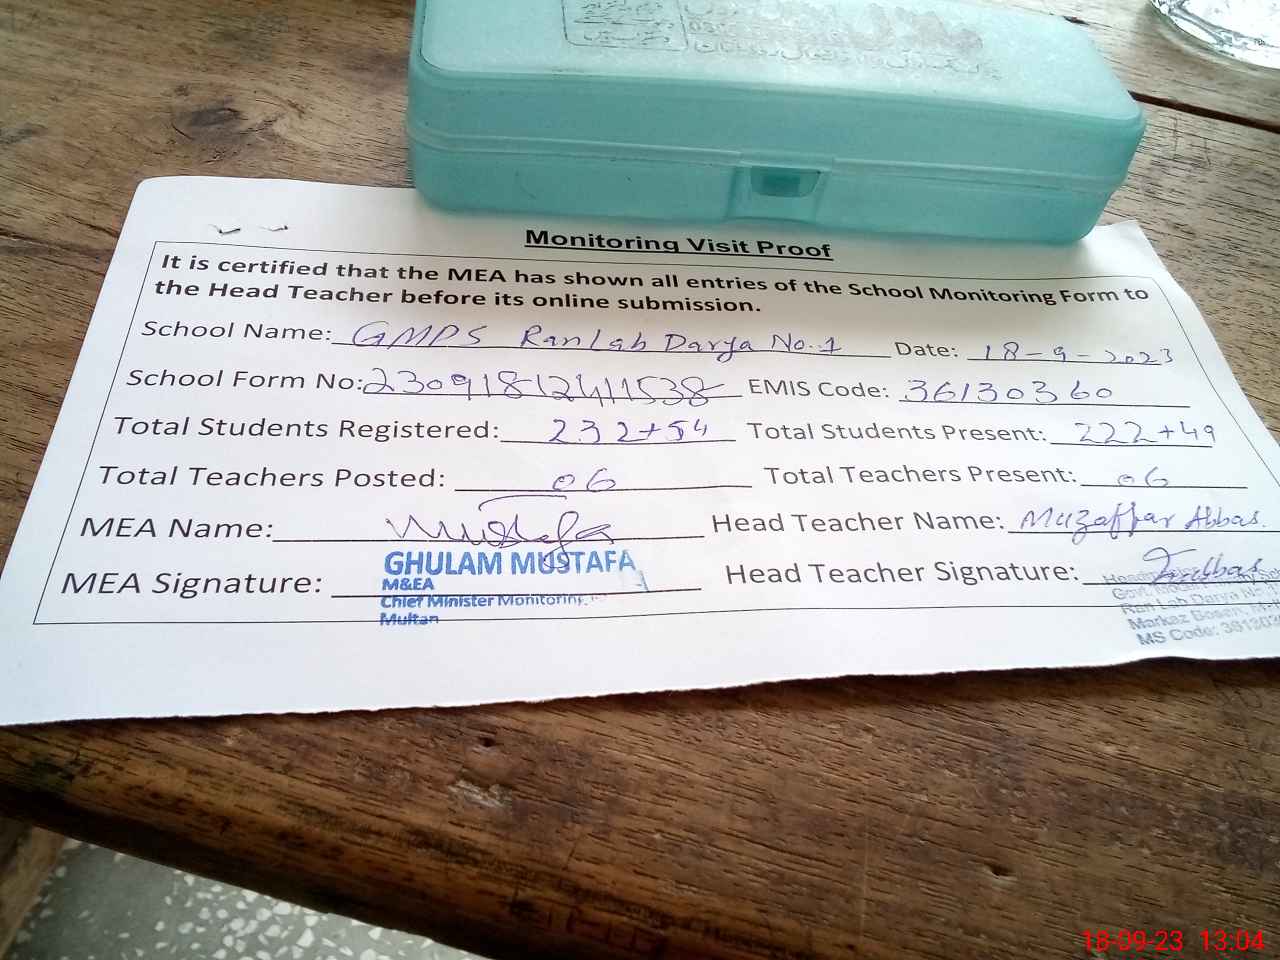 Monitoring Visit Proof
It is certified that the MEA has shown all entries of the School Monitoring Form to
the Head Teacher before its online submission.
School Name: GMPS Ran Lab Darya No.1 Date: 18-9-2023
School Form No: 230918124111538 EMIS Code: 36130360
Total Students Registered: 232+54 Total Students Present: 222+49
Total Teachers Posted: 06 Total Teachers Present: 06
MEA Name: Mustafa Head Teacher Name: Muzaffar Abbas.
MEA Signature: Head Teacher Signature:
GHULAM MUSTAFA
M&EA
Chief Minister Monitoring
Multan
Ran Lab Darya No.1
Markaz Bosan,
MS Code:
18-09-23 13:04